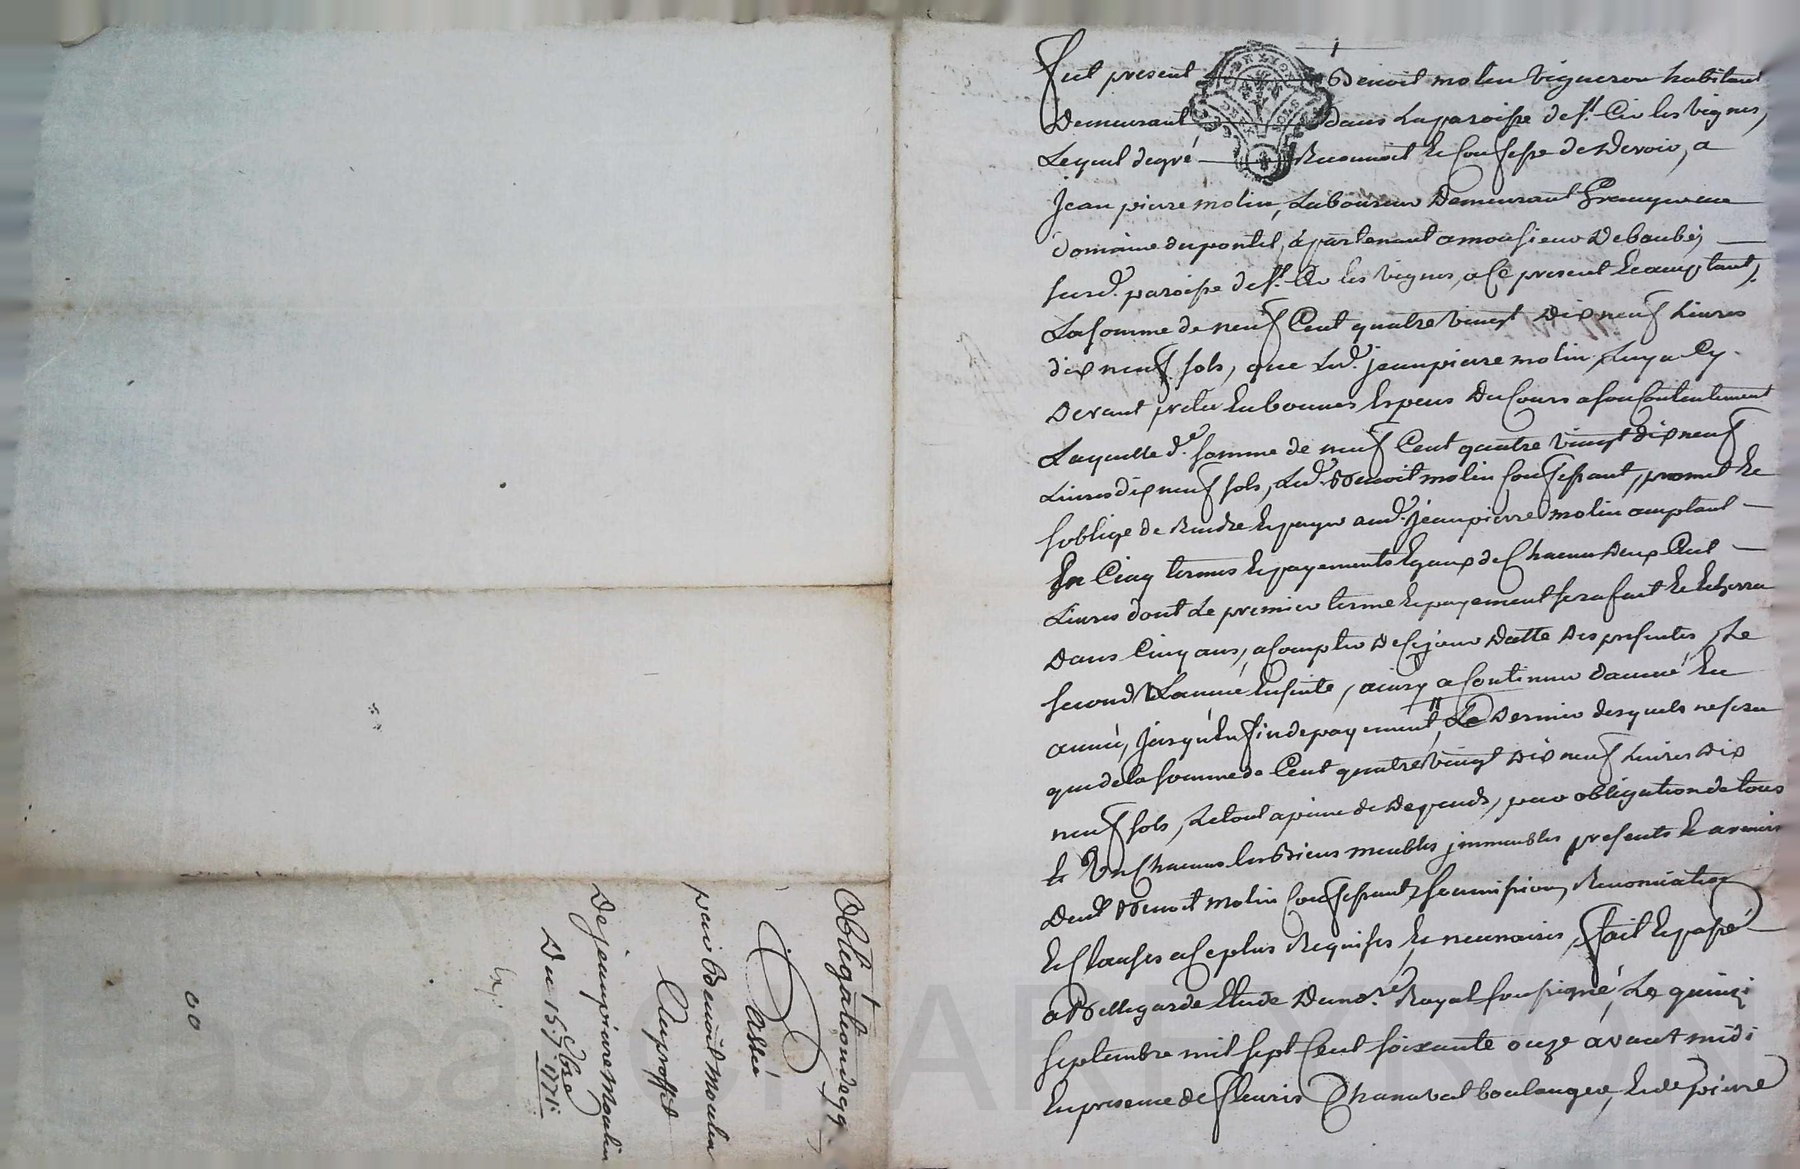 Fut present Benoit molin vigneron habitant
Demeurant dans La paroisse de st. Cir les vignes,
Lequel de gré Reconnoit Et Confesse de Devoir, a
Jean pierre molin, Laboureur Demeurant Granger au
domaine du pontet, apartenant a monsieur Debaubé,
surd. paroisse de st. Cir les vignes, a Ce present Et acceptant,
La somme de neuf Cent quatre vingt Dix neuf Livres
dix neuf sols, que Led. jean pierre molin Luy a Cy
Devant preter En bonnes Especes Du Cours a son Contentement
Laquelle de. somme de neuf Cent quatre vingt dix neuf
Livres dix neuf sols, Led. Benoit molin Confessant, promet Et
soblige de Rendre Et payer aud. jean pierre molin acceptant
En Cinq termes Et payements Egaux de Chacun Deux Cent
Livres dont Le premier terme Et payement sera fait Et Echerra
Dans Cinq ans, a Compter De Ce jour Datte Des presentes, Le
second L'année Ensuite, ainsy a Continuer d'année En
année, jusqu'en fin de payement, Le Dernier desquels ne sera
que de la somme de Cent quatre vingt Dix neuf Livres Dix
neuf sols, Le tout a peine de Depends, par obligation de tous
Et Un Chacuns les Biens meubles jmmeubles presents Et avenir
Dud. Benoit molin Confessant, soumission, Renonciation
Et Clauses a Ce plus Requises Et necessaires, fait Et passé
a Bellegarde Etude Du nore. Royal soussigné, Le quinze
septembre mil sept Cent soixante onze avant midi
En presence de fleuris Chanavat boulanger, Et de pierre
Obligation de 999
passée
par Benoit moulin
Au proffit
De jean pierre Moulin
Du 15. 7bre 1771.